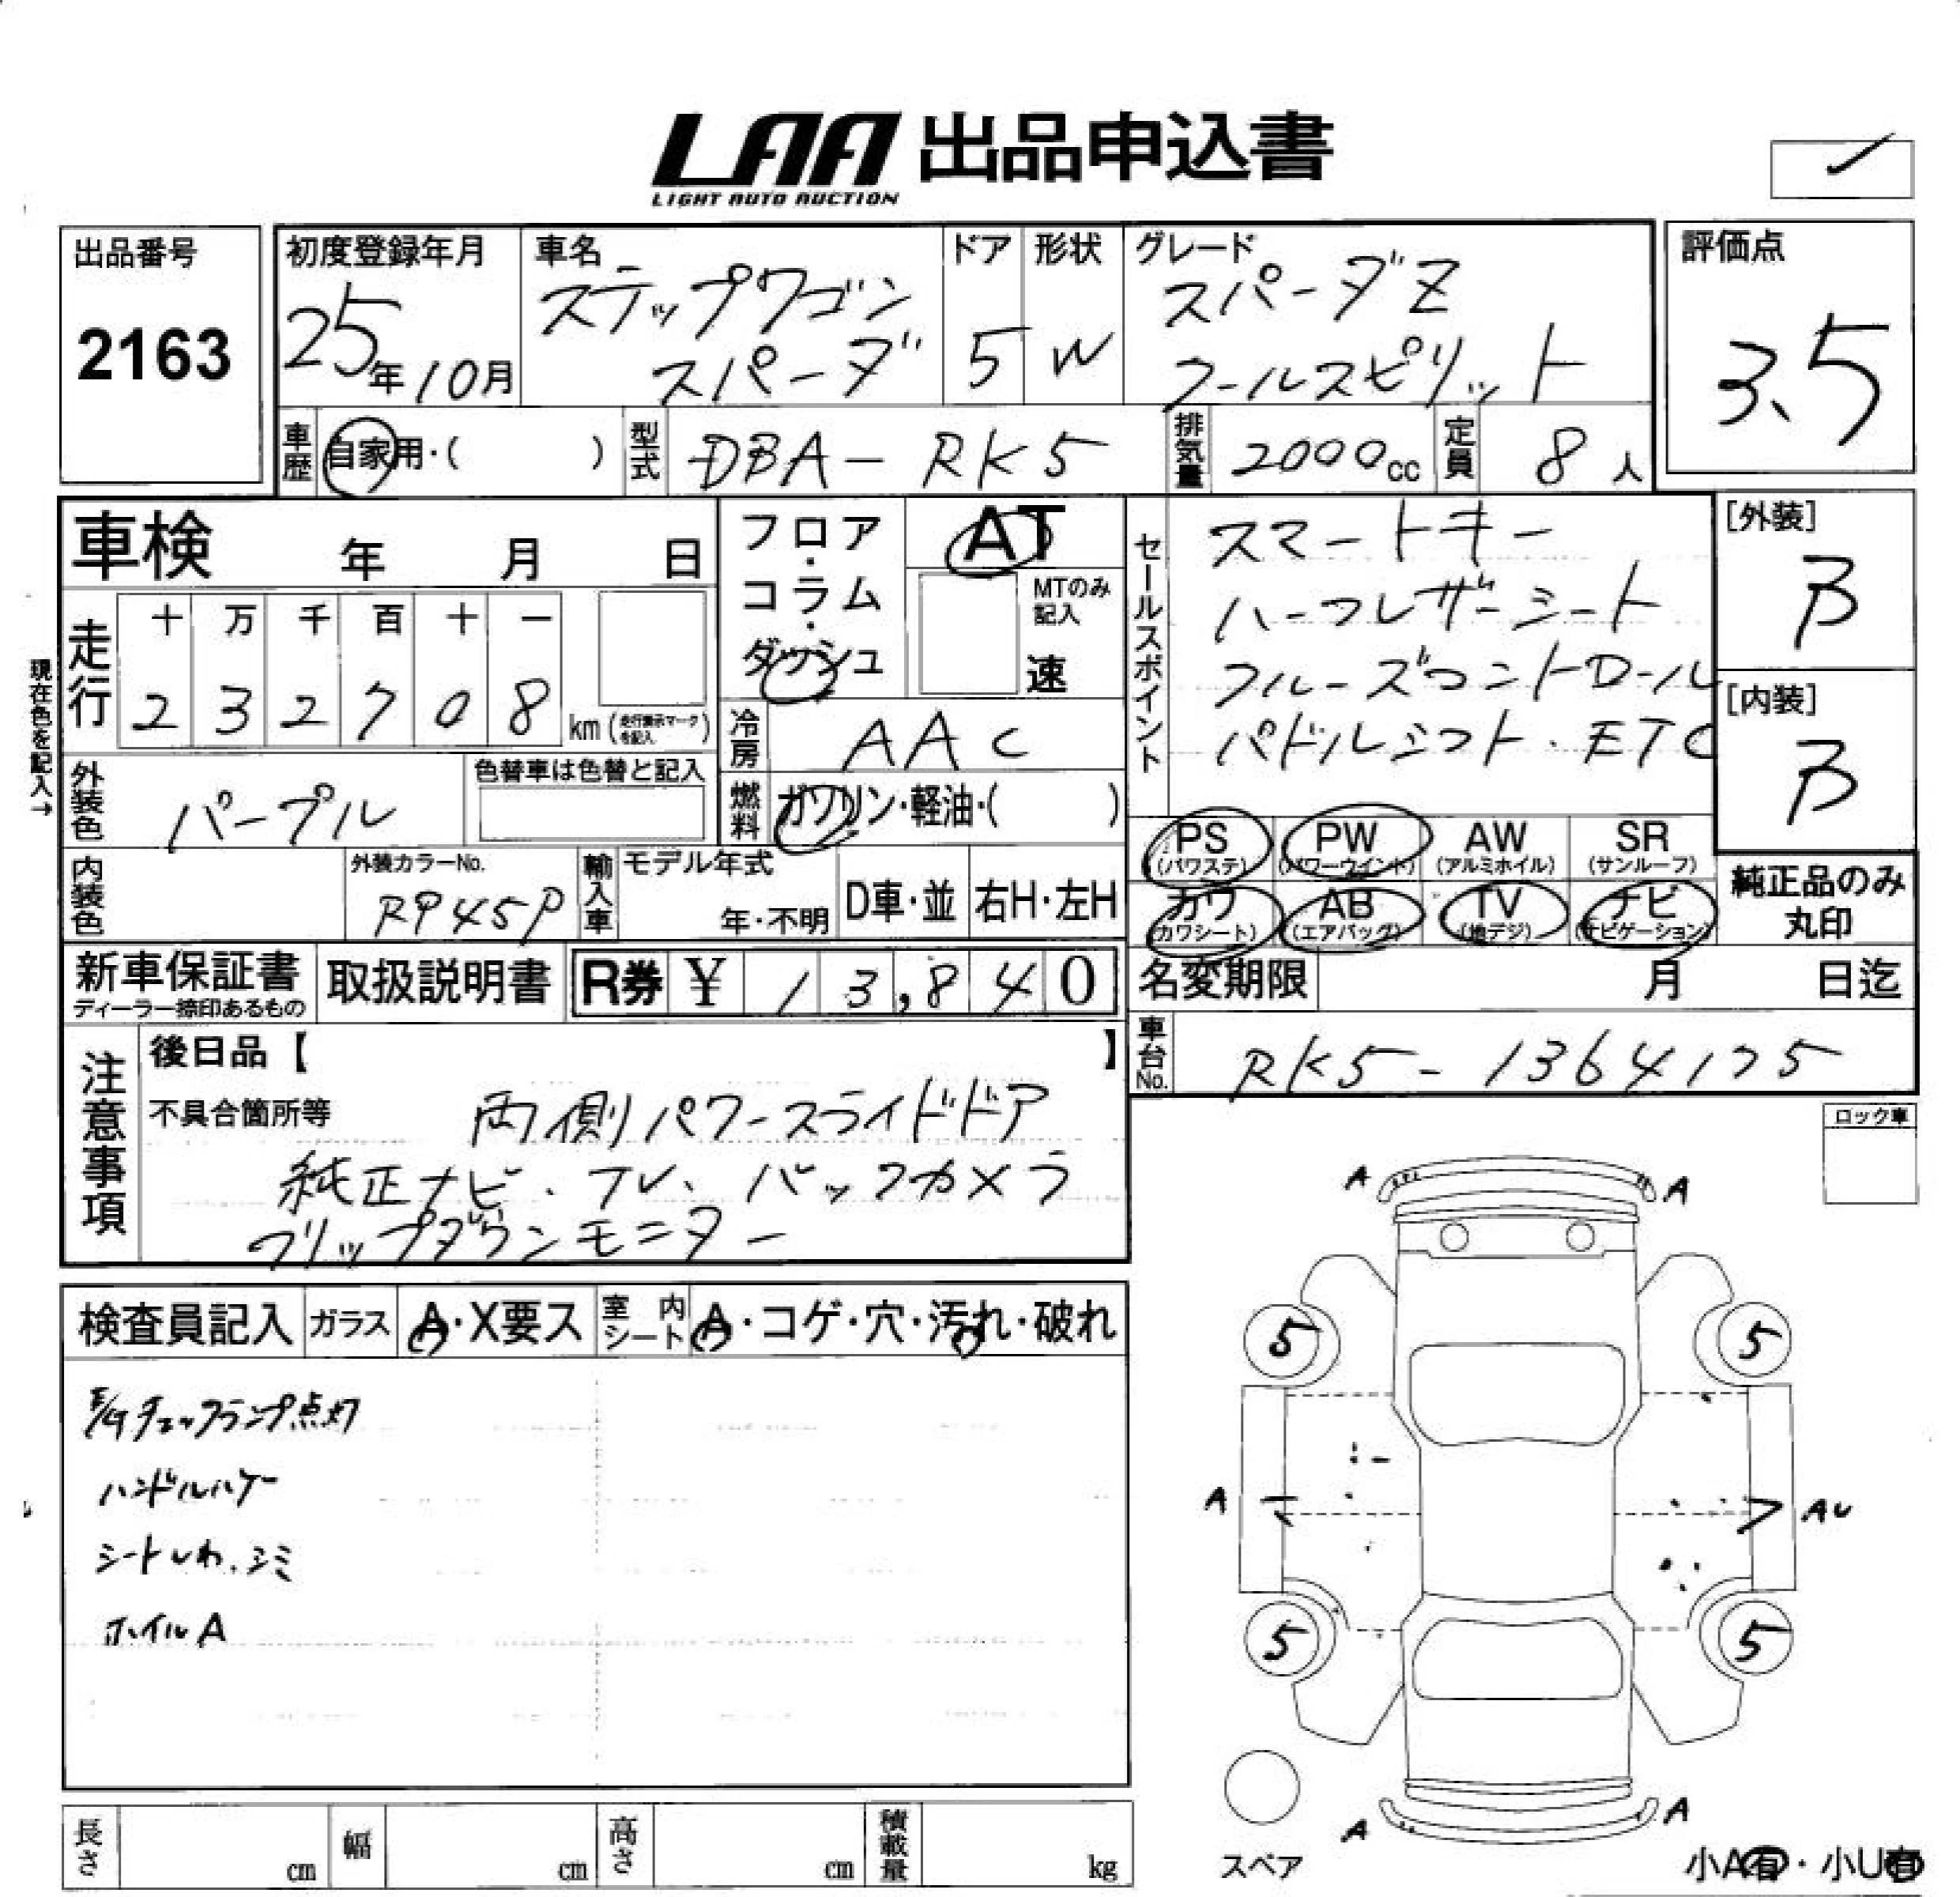 LAA 出品申込書
LIGHT AUTO AUCTION
出品番号
2163
初度登録年月
25年10月
車名
ステップワゴン
スパーダ
ドア
5
形状
W
グレード
スパーダZ
クールスピリット
評価点
3.5
車歴
自家用・( )
型式
DBA-RK5
排気量
2000cc
定員
8人
車検 年 月 日
現在色を記入→
走行
十 万 千 百 十 一
2 3 2 7 0 8 km (走行表示マークを記入)
フロア・コラム・ダッシュ
AT
MTのみ記入
速
冷房
AAC
燃料
ガソリン・軽油・( )
外装色
パープル
色替車は色替と記入
内装色
外装カラーNo.
RP45P
輸入車
モデル年式
年・不明
D車・並
右H・左H
セールスポイント
スマートキー
ハーフレザーシート
クルーズコントロール
パドルシフト・ETC
[外装]
B
[内装]
B
PS (パワステ)
PW (パワーウインド)
AW (アルミホイル)
SR (サンルーフ)
カワ (カワシート)
AB (エアバッグ)
TV (地デジ)
ナビ (ナビゲーション)
純正品のみ
丸印
新車保証書
ディーラー捺印あるもの
取扱説明書
R券 ¥ 13,840
名変期限 月 日迄
車台No.
RK5-1364175
注意事項
後日品【 】
不具合箇所等
両側パワースライドドア
純正ナビ・TV、バックカメラ
フリップダウンモニター
ロック車
検査員記入
ガラス
A・X要ス
室内シート
A・コゲ・穴・汚れ・破れ
E/Gチェックランプ点灯
ハンドルハゲー
シートしわ、シミ
ホイルA
A
A
5
5
A
AU
5
5
A
A
スペア
小A有・小U有
長さ cm
幅 cm
高さ cm
積載量 kg